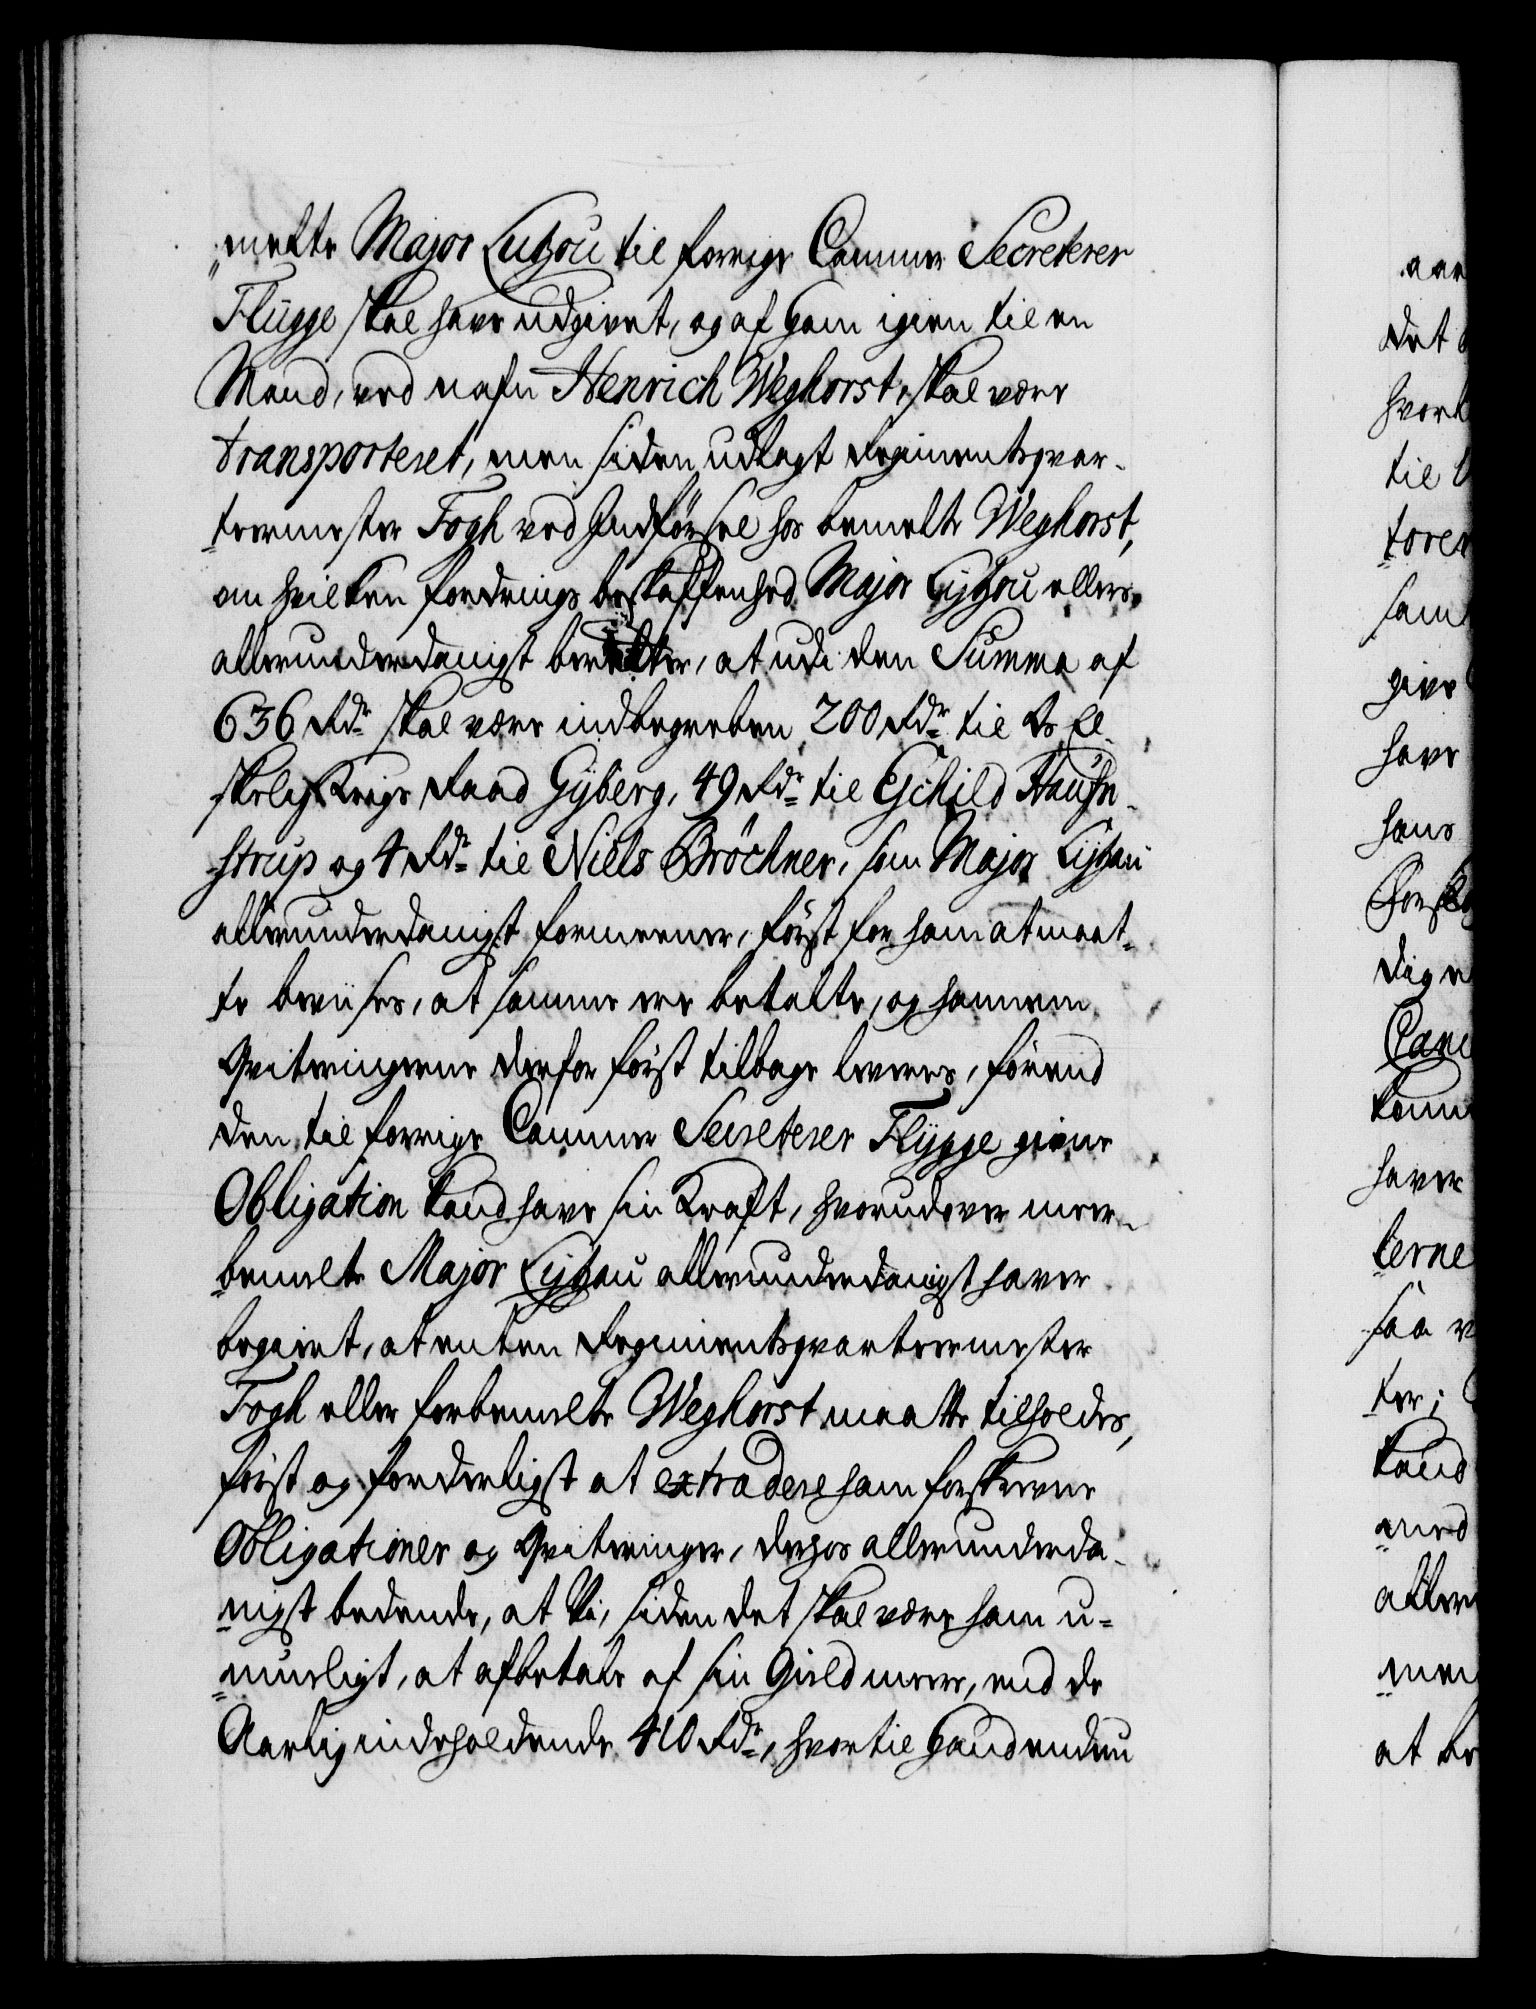 „melte Major Lutzou til forrige Cammer Secreterer
Flügge skal have udgivet, og af ham igien til en
Mand, ved nafn Henrich Weghorst, skal være
transporteret, men siden udlagt Regimentsqvar-
teermester Fogh ved Indførsel hos bemelte Weghorst,
om hvilken fordrings beskaffenhed Major Lytzou ellers
allerunderdanigst beretter, at udi den Summa af
636 Rdr skal være indbegreben 200 Rdr til Os El-
skelig Krigs Raad Gyberg, 49 Rdr til Eschild Haufn-
strup og 4 Rdr til Niels Bröchner, som Major Lytzau
allerunderdanigst formeener, først for ham at maat-
te beviises, at samme ere betalte, og hannem
Qvitteringerne derfor først tilbage leveres, förend
den til forrige Cammer Secreterer Flygge givne
Obligation kand have sin Kraft, hvorudover meer-
bemelte Major Lytzau allerunderdanigst haver
begiert, at enten Regimentsqvarteermester
Fogh eller forbemelte Weghorst maatte tilholdes,
först og forderligst at extradere ham forskrevne
Obligationer og Qvitteringer, derhos allerunderda-
nigst bedende, at Vi, siden det skal være ham u-
mueligt, at afbetale af sin Gield meere, end de
Aarlig indeholdende 410 Rdr, hvortil hand endnu
aar
det
hvor
til
torer
sam
give
have
hans
Forsk
dig
Canc
komm
haver
terne
saa
ter;
kand
med
aller
men
at be